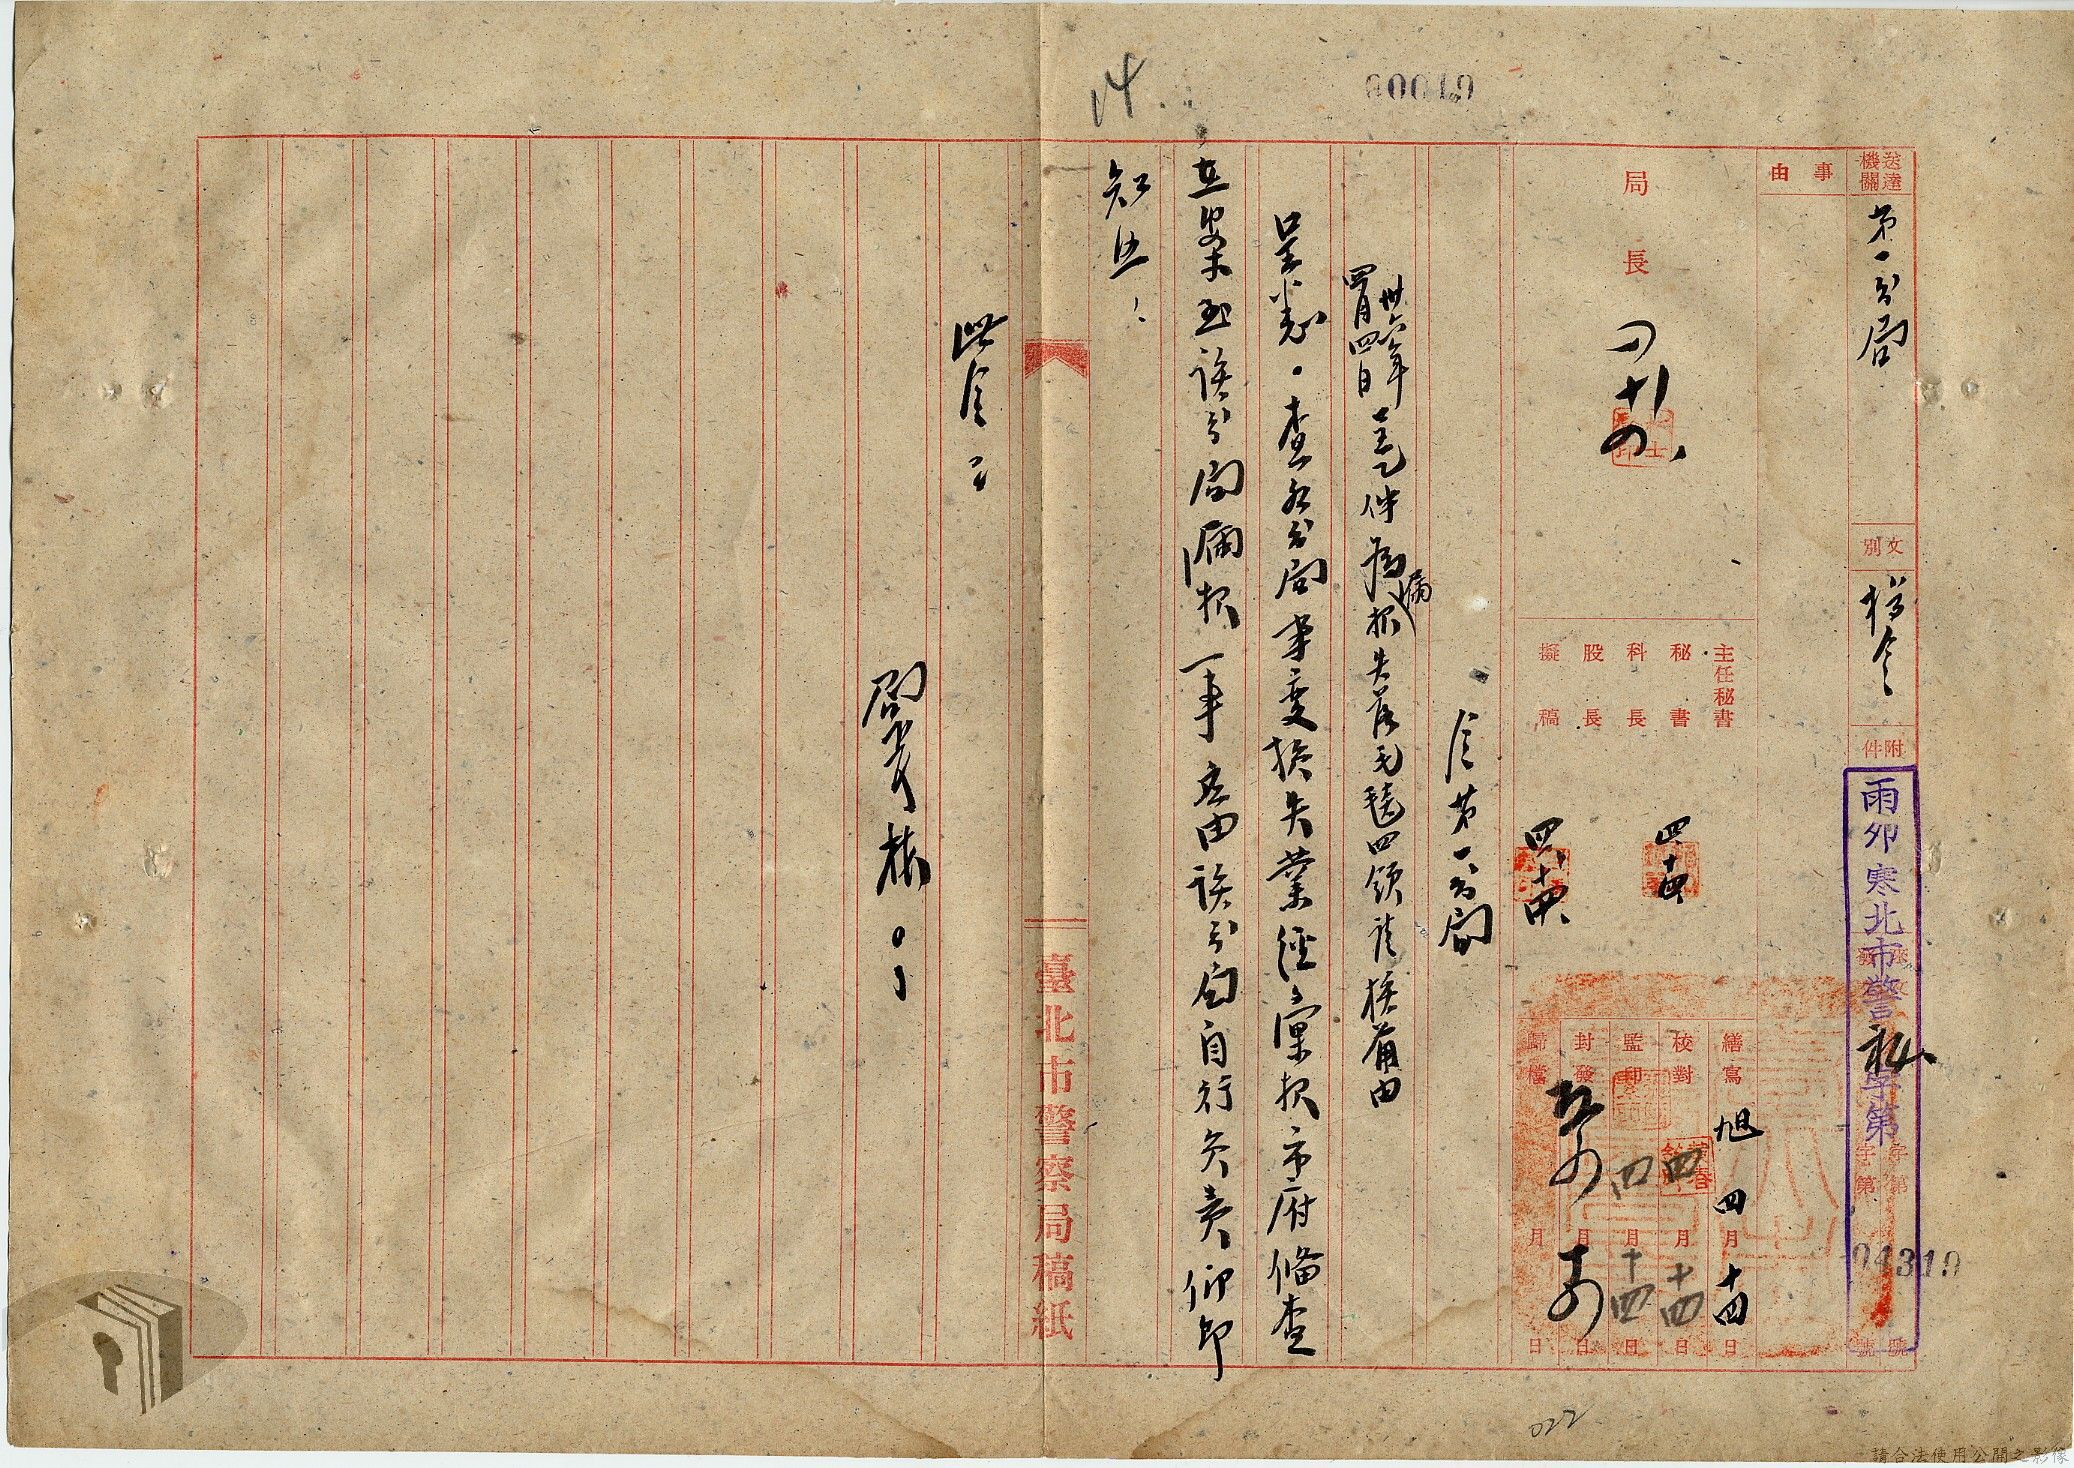 00019
送達機關
第一分局
文別
指令
附件
雨卯寒北市警秘字第
04319
字第
字第
號
號
事由
局長
主任秘書
秘書
科長
股長
擬稿
四、十四
四、十四
繕寫 旭 四月十四日
校對 四月十四日
監印 四月十四日
封發 月 日
歸檔 月 日
令第一分局
卅六年四月四日
呈乙件為漏報失落毛毯四領請核備由
呈悉。查各分局事變損失業經彙報市府備查
在案至該分局漏報一事應由該分局自行負責仰即
知照!
此令。
局長
臺北市警察局稿紙
022
請合法使用公開之影像